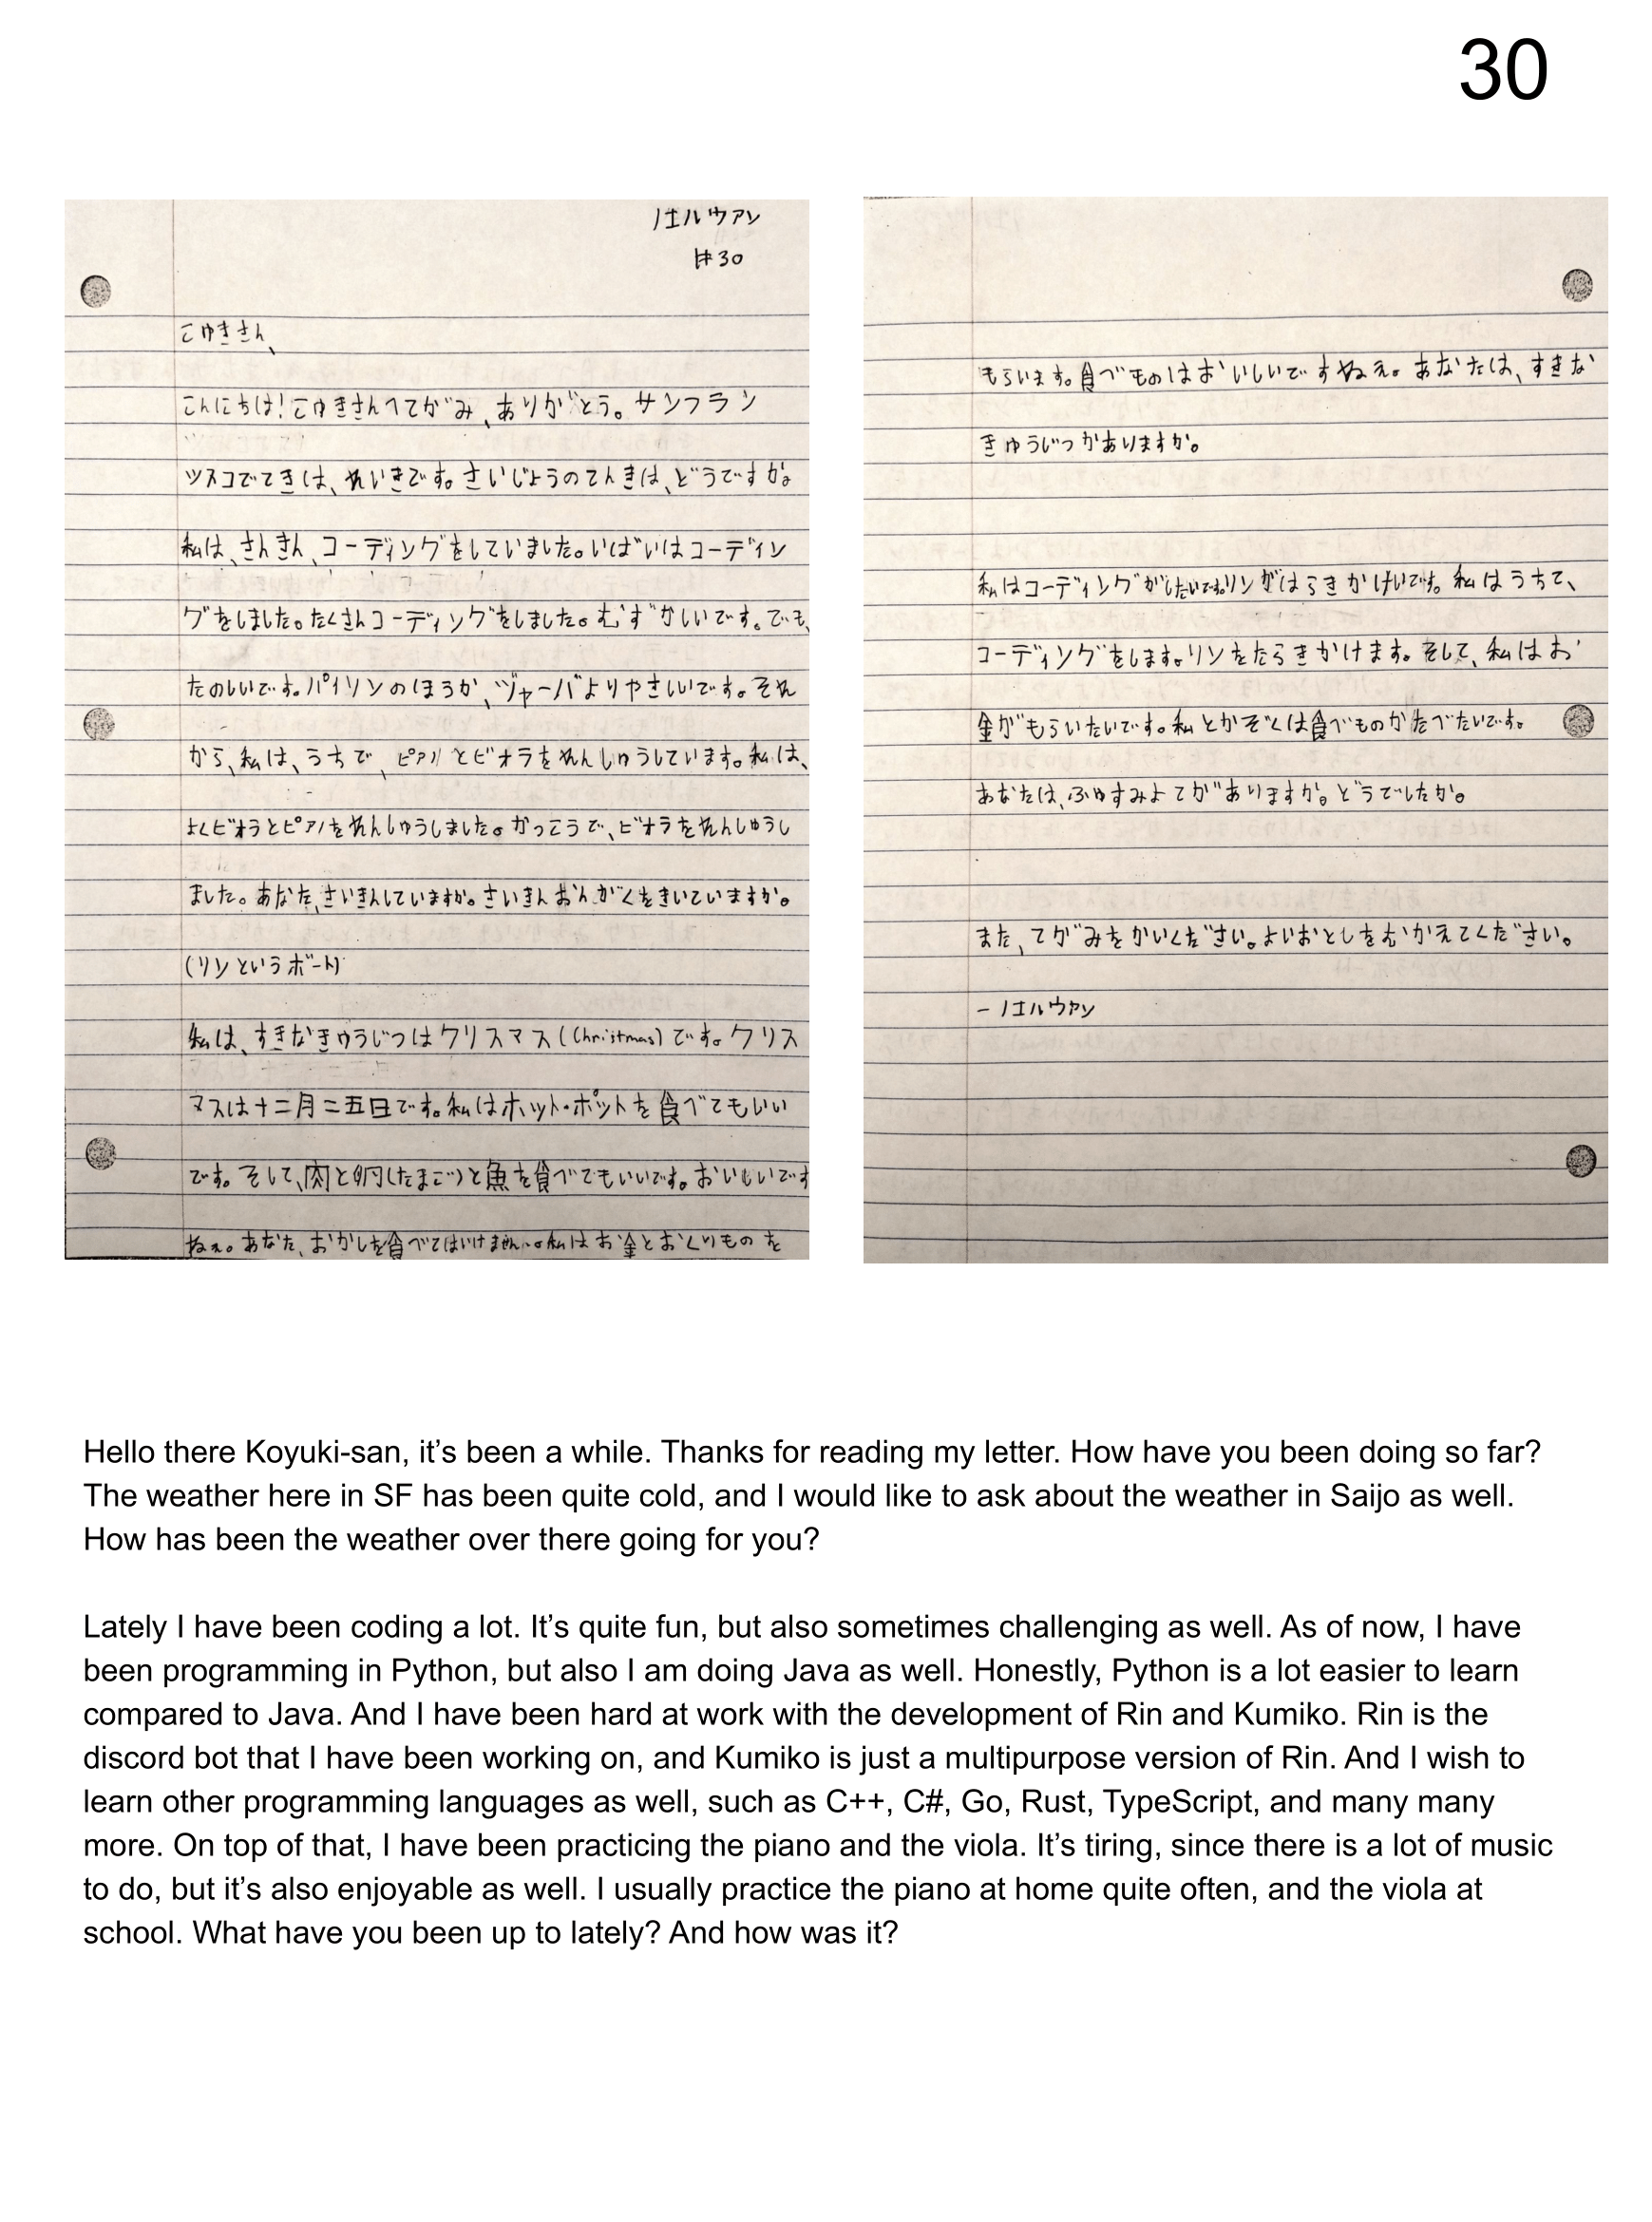 30
ノエルウァン
#30
こゆきさん、
こんにちは!こゆきさんへてがみ、ありがとう。サンフラン
ツスコでてきは、れいきです。さいじょうのてんきは、どうですか。
私は、さんきん、コーディングをしていました。いばいはコーディン
グをしました。たくさんコーディングをしました。むずかしいです。でも、
たのしいです。パイソンのほうか、ヅャーバよりやさしいです。それ
から、私は、うちで、ピアノとビオラをれんしゅうしています。私は、
よくビオラとピアノをれんしゅうしました。がっこうで、ビオラをれんしゅうし
ました。あなた、さいきんしていますか。さいきんおんがくをきいていますか。
(リンというボート)
私は、すきなきゅうじつはクリスマス(Christmas)です。クリス
マスは十二月二五日です。私はホット・ポットを食べてもいい
です。そして、肉と卵(たまご)と魚を食べてもいいです。おいしいです
ねぇ。あなた、おかしを食べてはいけません。私はお金とおくりものを
もらいます。食べものはおいしいですねえ。あなたは、すきな
きゅうじつがありますか。
私はコーディングがしたいです。リンがはらきかけいです。私はうちで、
コーディングをします。リンをたらきかけます。そして、私はお
金がもらいたいです。私とかぞくは食べものかたべたいです。
あなたは、ふゆすみよてがありますか。どうでしたか。
また、てがみをかいください。よいおとしをむかえてください。
- ノエルウァン
Hello there Koyuki-san, it’s been a while. Thanks for reading my letter. How have you been doing so far?
The weather here in SF has been quite cold, and I would like to ask about the weather in Saijo as well.
How has been the weather over there going for you?
Lately I have been coding a lot. It’s quite fun, but also sometimes challenging as well. As of now, I have
been programming in Python, but also I am doing Java as well. Honestly, Python is a lot easier to learn
compared to Java. And I have been hard at work with the development of Rin and Kumiko. Rin is the
discord bot that I have been working on, and Kumiko is just a multipurpose version of Rin. And I wish to
learn other programming languages as well, such as C++, C#, Go, Rust, TypeScript, and many many
more. On top of that, I have been practicing the piano and the viola. It’s tiring, since there is a lot of music
to do, but it’s also enjoyable as well. I usually practice the piano at home quite often, and the viola at
school. What have you been up to lately? And how was it?